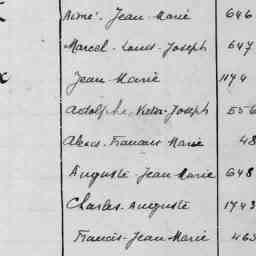 Aimé. Jean-Marie 646
Marcel-Louis-Joseph 647
Jean-Marie 1174
Adolphe, Victor-Joseph 556
Alexis-François Marie 48
Auguste-Jean-Marie 648
Charles-Auguste 1743
Francis-Jean-Marie 463